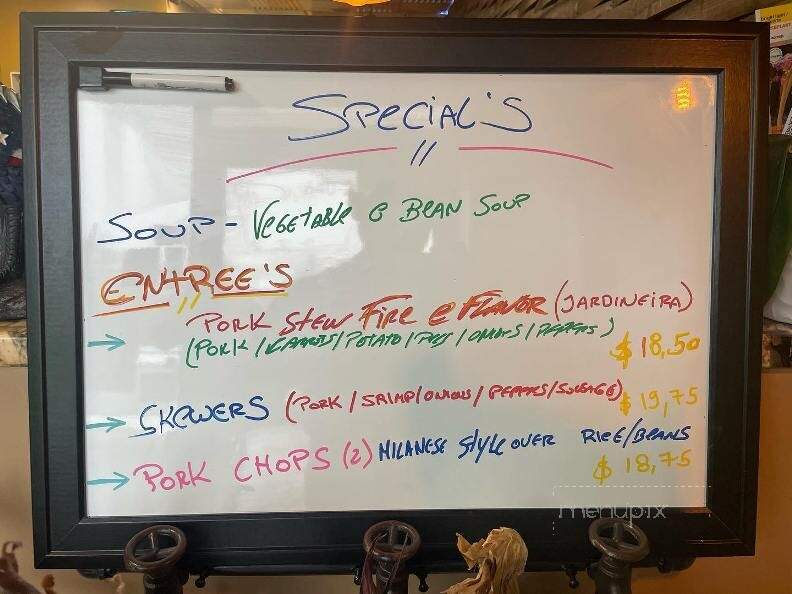 SPECIAL'S
SOUP - VEGETABLE e BEAN SOUP
ENTREE'S
PORK STEW FIRE e FLAVOR (JARDINEIRA)
(PORK / CARROTS / POTATO / PEAS / ONIONS / PEPPERS) $18,50
SKEWERS (PORK / SRIMP / ONIONS / PEPPERS / SAUSAGE) $19,75
PORK CHOPS (2) MILANESE STYLE OVER RICE/BEANS
$18,75
menupix